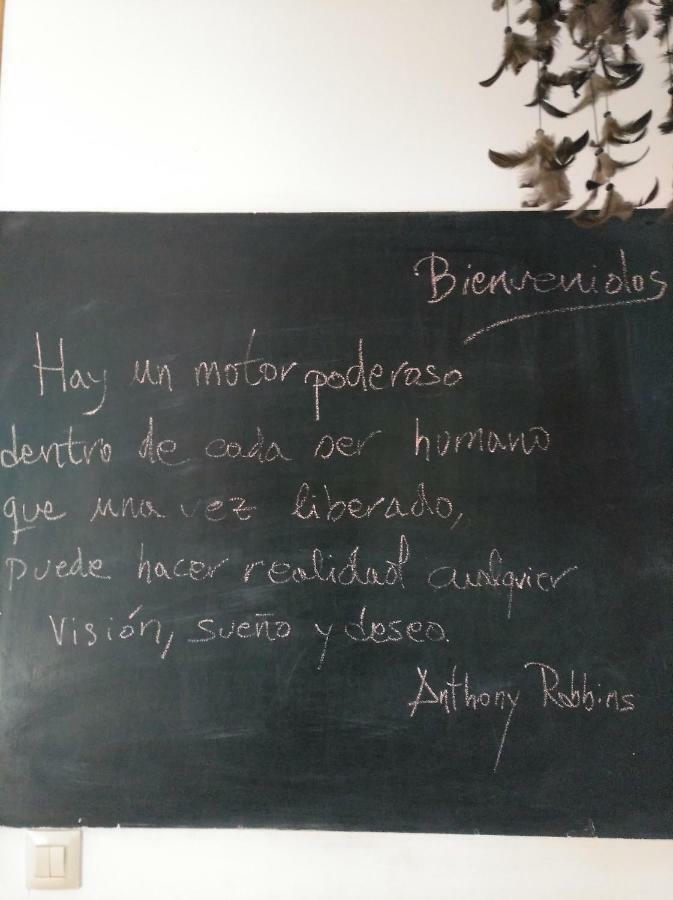 Bienvenidos
Hay un motor poderoso
dentro de cada ser humano
que una vez liberado,
puede hacer realidad cualquier
visión, sueño y deseo.
Anthony Robbins